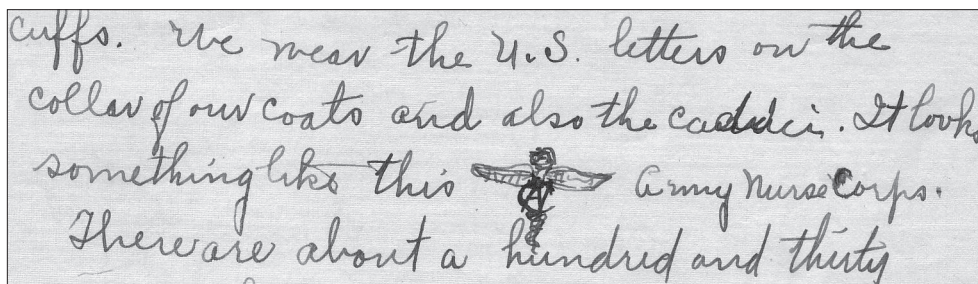 cuffs. We wear the U.S. letters on the
collar of our coats and also the caducei. It looks
something like this Army Nurse Corps.
There are about a hundred and thirty